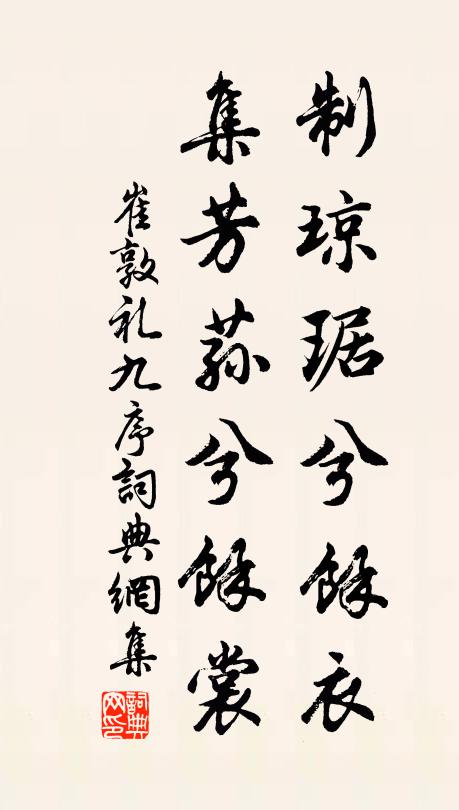 制琼琚兮餘衣
集芳荪兮餘裳
崔敦礼九序詞典網集
詞典網印